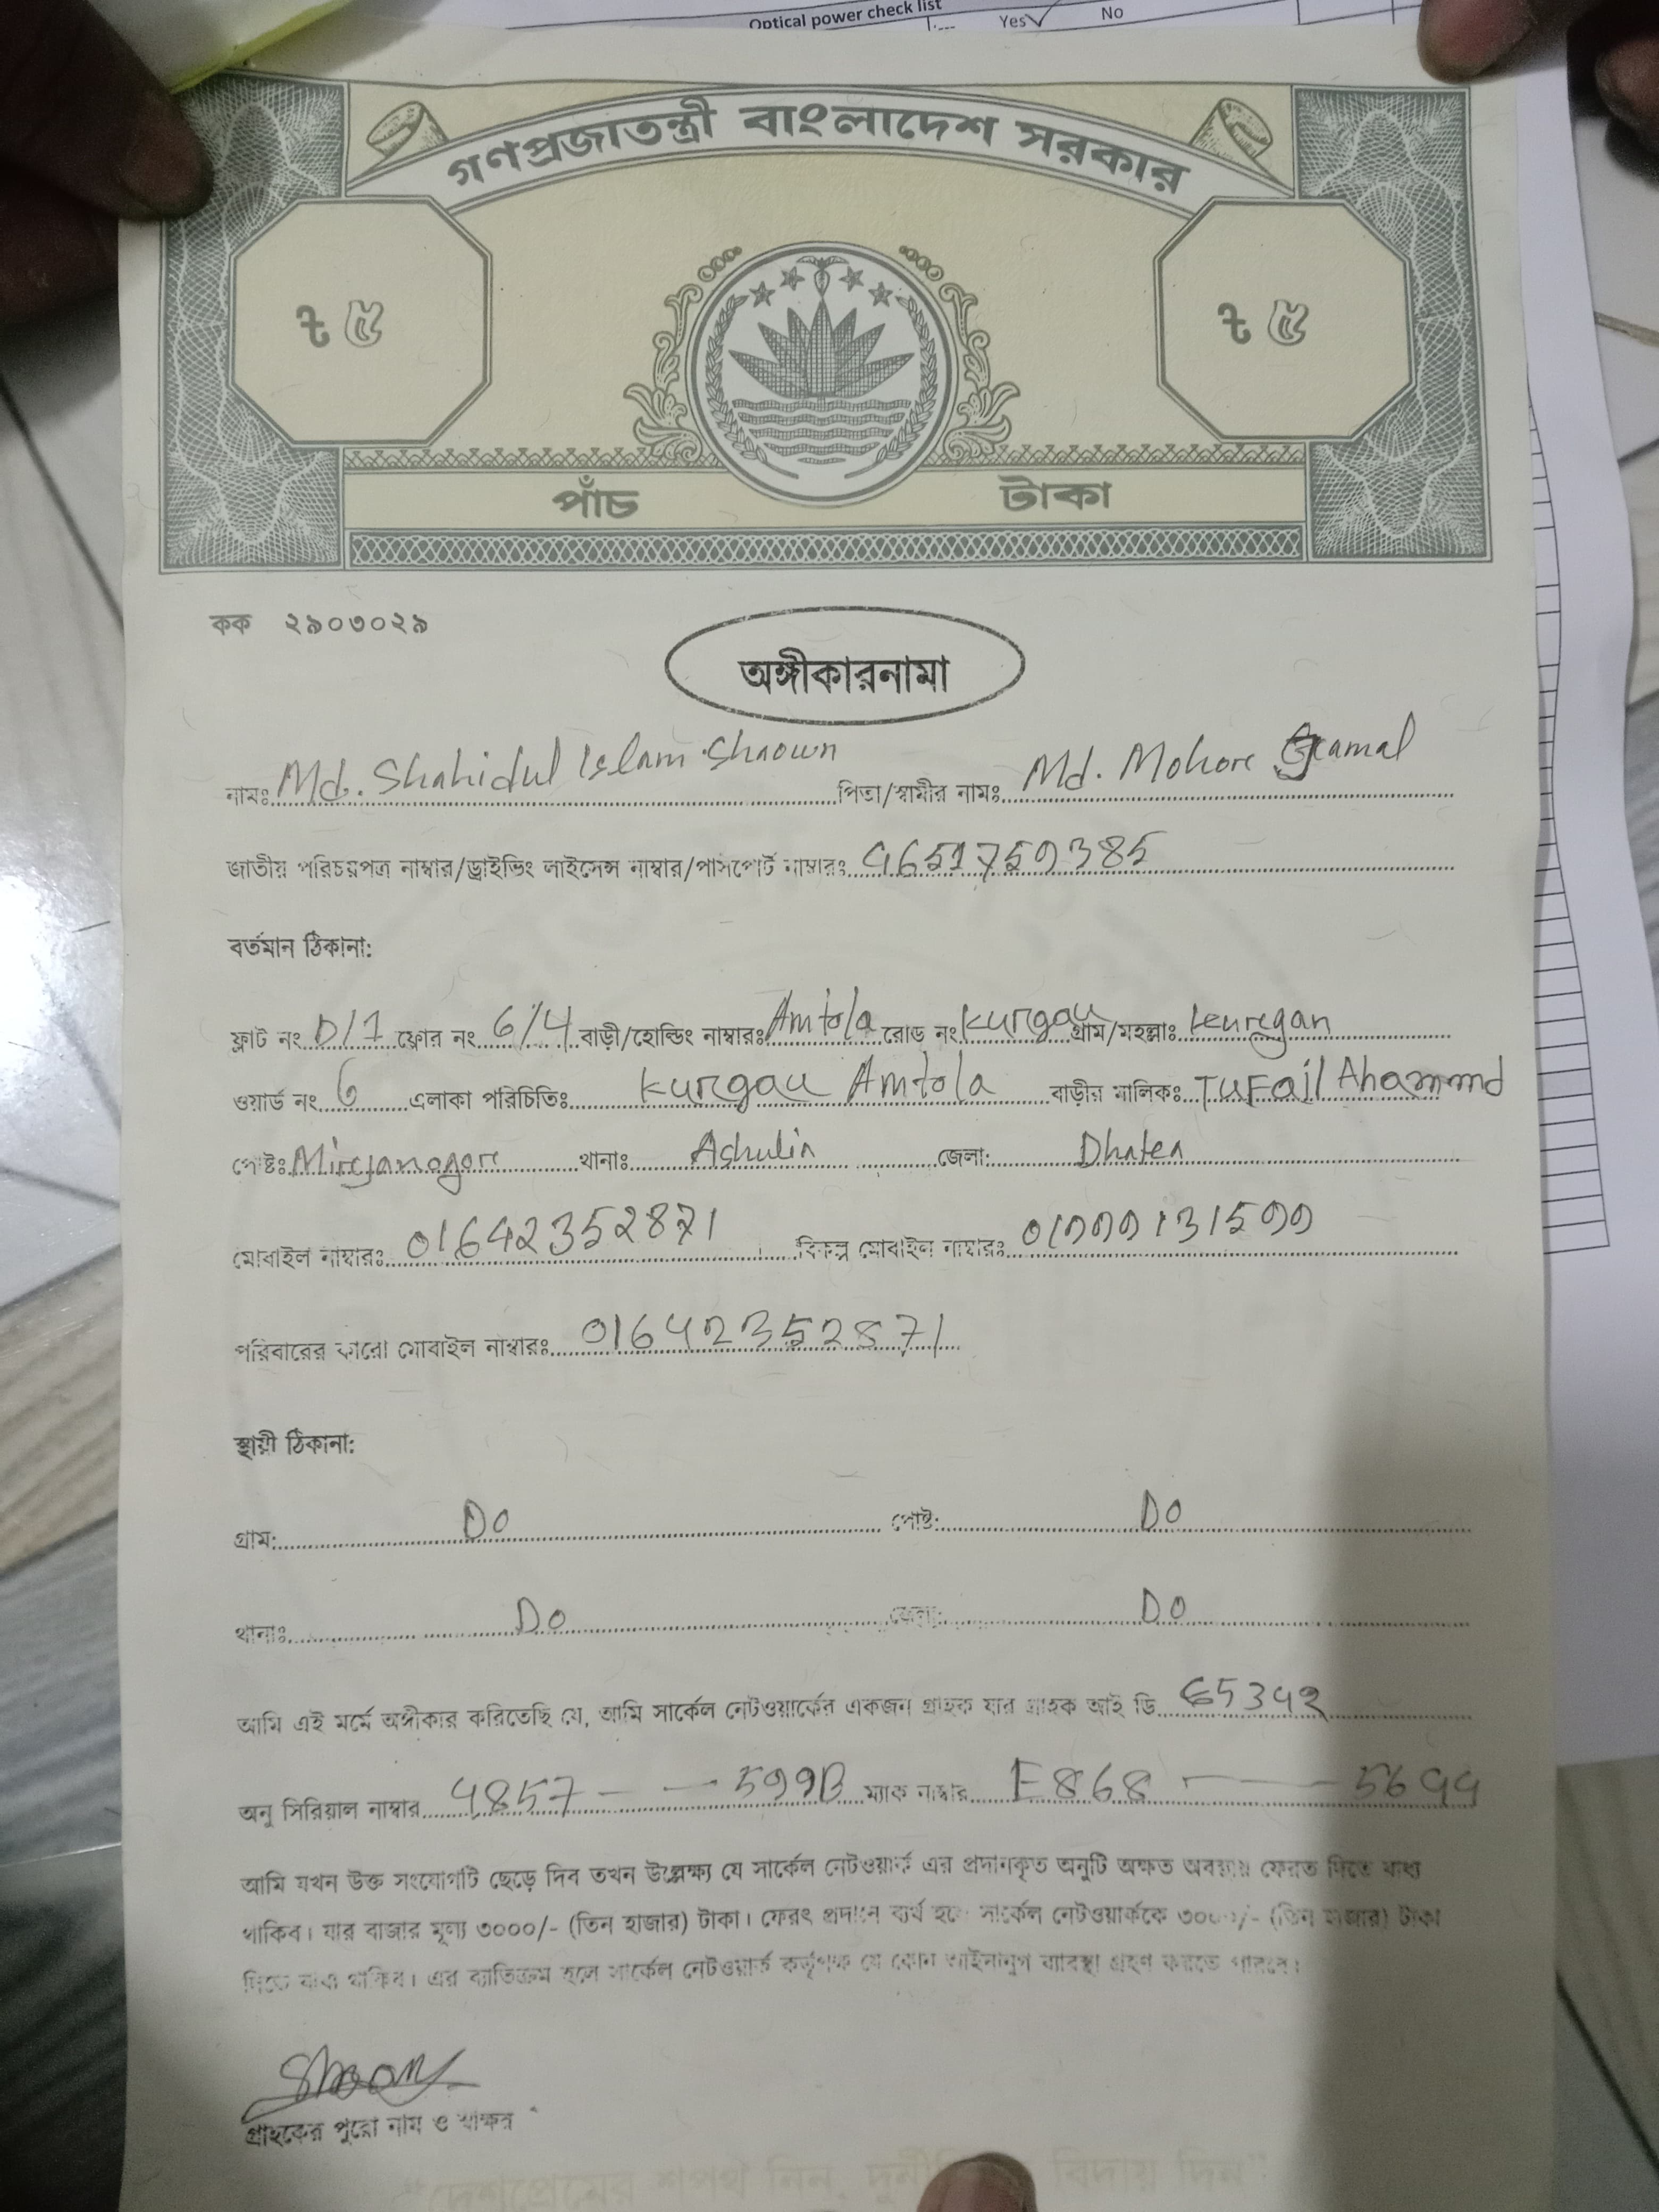 Optical power check list
Yes✓ No
গণপ্রজাতন্ত্রী বাংলাদেশ সরকার
৳ ৫ ৳ ৫
পাঁচ টাকা
কক ২৯০৩০২৯
অঙ্গীকারনামা
নামঃ Md. Shahidul Islam Shaown পিতা/স্বামীর নামঃ Md. Mohore Jamal
জাতীয় পরিচয়পত্র নাম্বার/ড্রাইভিং লাইসেন্স নাম্বার/পাসপোর্ট নাম্বারঃ
বর্তমান ঠিকানা:
ফ্লাট নং D/1 ফ্লোর নং 6/4 বাড়ী/হোল্ডিং নাম্বারঃ Amtola রোড নং Kurgau গ্রাম/মহল্লাঃ
ওয়ার্ড নং 6 এলাকা পরিচিতিঃ Kurgau Amtola বাড়ীর মালিকঃ TuFail Ahammd
পোষ্টঃ থানাঃ Ashulia জেলা:
মোবাইল নাম্বারঃ 01642352871 বিকল্প মোবাইল নাম্বারঃ
পরিবারের কারো মোবাইল নাম্বারঃ 01642352871
স্থায়ী ঠিকানা:
গ্রাম: Do পোষ্ট: Do
থানাঃ Do জেলা: Do
আমি এই মর্মে অঙ্গীকার করিতেছি যে, আমি সার্কেল নেটওয়ার্কের একজন গ্রাহক যার গ্রাহক আই ডি 65342
অনু সিরিয়াল নাম্বার 4857 — — 599B ম্যাক নাম্বার E868 —
আমি যখন উক্ত সংযোগটি ছেড়ে দিব তখন উল্লেক্ষ্য যে সার্কেল নেটওয়ার্ক এর প্রদানকৃত অনুটি অক্ষত অবস্থায় ফেরত দিতে বাধ্য
থাকিব। যার বাজার মূল্য ৩০০০/- (তিন হাজার) টাকা। ফেরৎ প্রদানে ব্যর্থ হলে সার্কেল নেটওয়ার্ককে ৩০০০/- (তিন হাজার) টাকা
দিতে বাধ্য থাকিব। এর ব্যাতিক্রম হলে সার্কেল নেটওয়ার্ক কর্তৃপক্ষ যে কোন আইনানুগ ব্যাবস্থা গ্রহণ করতে পারবে।
গ্রাহকের পুরো নাম ও স্বাক্ষর
"দেশপ্রেমের শপথ নিন, বিদায় দিন"